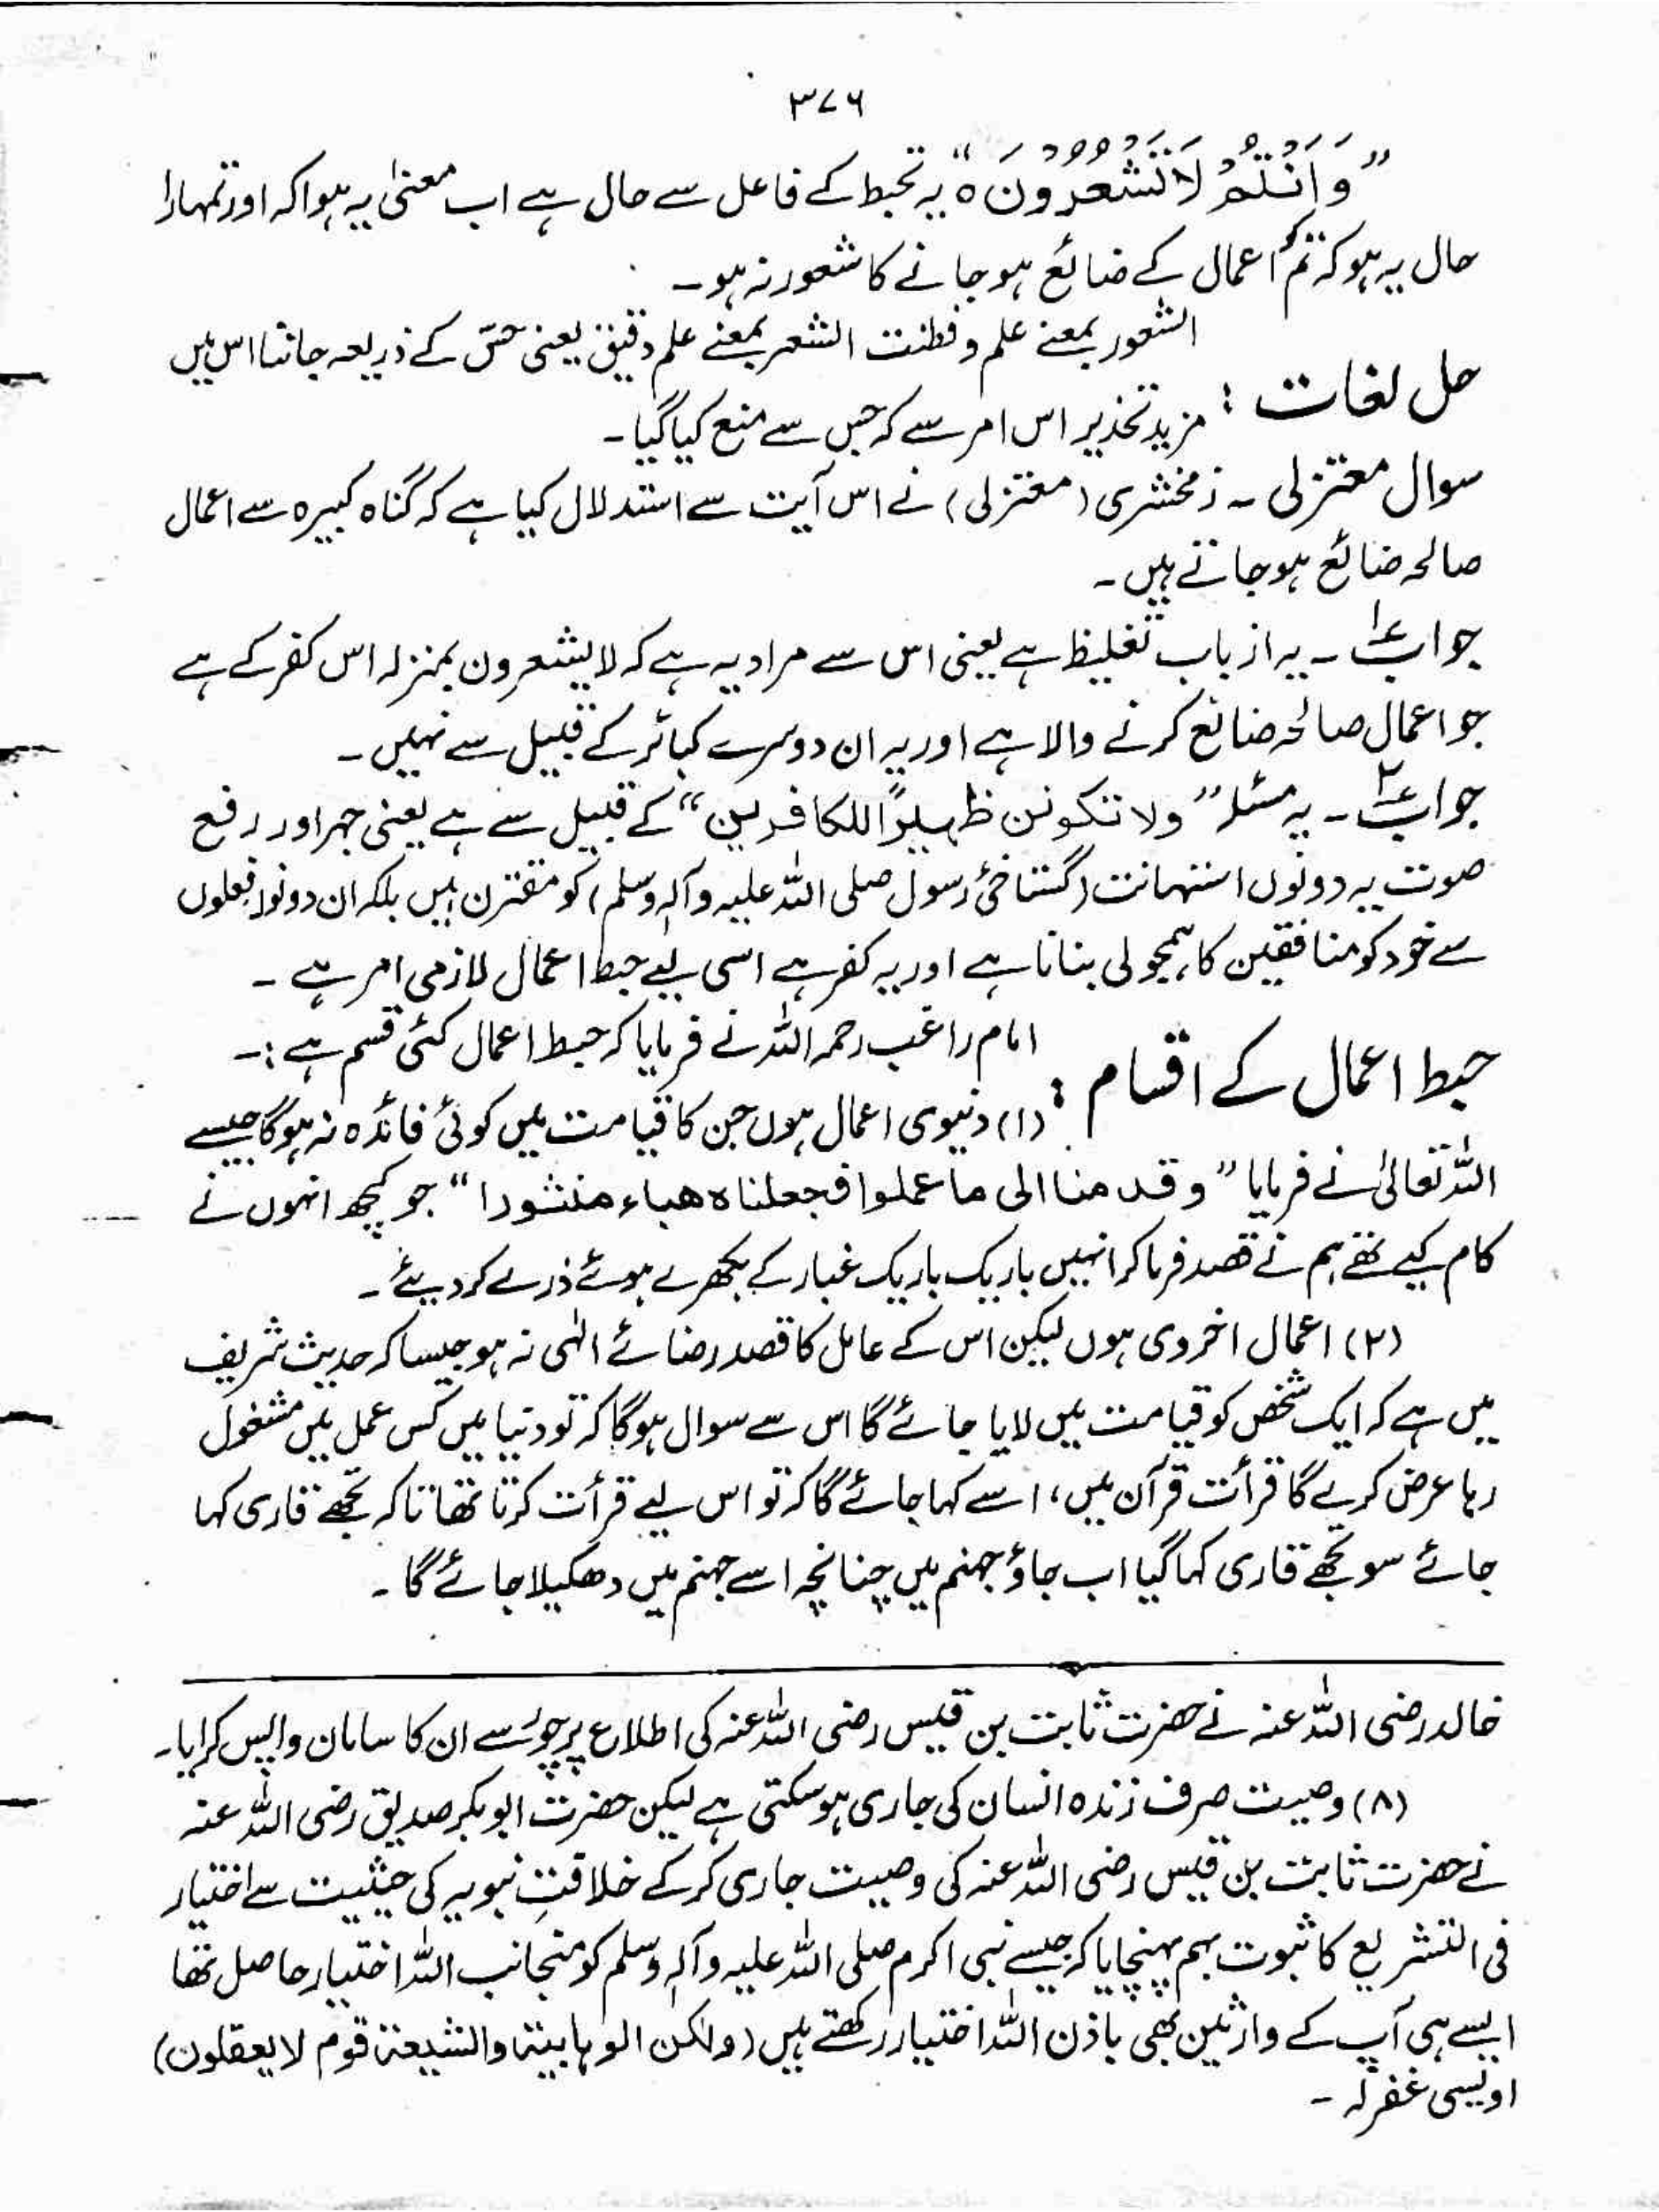 ۳۷۶
”وَاَنْتُمْ لَا تَشْعُرُوْنَ ہ“ یہ تحبط کے فاعل سے حال ہے اب معنیٰ یہ ہوا کہ اور تمہارا
حال یہ ہو کہ تم کو اعمال کے ضائع ہو جانے کا شعور نہ ہو ۔
الشعور بمعنے علم و فطنت الشعر بمعنے علم دقیق یعنی حسّ کے ذریعہ جاننا اس میں
حل لغات :
مزید تحذیر اس امر سے کہ جس سے منع کیا گیا ۔
سوال معتزلی ۔ زمخشری (معتزلی) نے اس آیت سے استدلال کیا ہے کہ گناہ کبیرہ سے اعمال
صالحہ ضائع ہو جاتے ہیں ۔
جواب ؏۱ ۔ یہ از باب تغلیظ ہے یعنی اس سے مراد یہ ہے کہ لا یشعرون بمنزلہ اس کفر کے ہے
جو اعمال صالحہ ضائع کرنے والا ہے اور یہ ان دوسرے کبائر کے قبیل سے نہیں ۔
جواب ؏۲ ۔ یہ مسئلہ ”ولا تکونن ظہیرًا للکافرین“ کے قبیل سے ہے یعنی جہر اور رفع
صوت یہ دونوں استہانت (گستاخئ رسول صلی اللہ علیہ وآلہٖ وسلم) کو مقترن ہیں بلکہ ان دونوں فعلوں
سے خود کو منافقین کا ہمجولی بنانا ہے اور یہ کفر ہے اسی لیے حبط اعمال لازمی امر ہے ۔
امام راغب رحمہ اللہ نے فرمایا کہ حبط اعمال کئی قسم ہے :۔
حبط اعمال کے اقسام :
(۱) دنیوی اعمال ہوں جن کا قیامت میں کوئی فائدہ نہ ہوگا جیسے
اللہ تعالیٰ نے فرمایا ”وقدمنا الی ما عملوا فجعلناہ ھباء منثورا“ جو کچھ انہوں نے
کام کیے تھے ہم نے قصد فرما کر انہیں باریک باریک غبار کے بکھرے ہوئے ذرے کر دیئے ۔
(۲) اعمال اخروی ہوں لیکن اس کے عامل کا قصد رضائے الٰہی نہ ہو جیسا کہ حدیث شریف
میں ہے کہ ایک شخص کو قیامت میں لایا جائے گا اس سے سوال ہوگا کہ تو دنیا میں کس عمل میں مشغول
رہا عرض کرے گا قرأت قرآن میں، اسے کہا جائے گا کہ تو اس لیے قرأت کرتا تھا تاکہ تجھے قاری کہا
جائے سو تجھے قاری کہا گیا اب جاؤ جہنم میں چنانچہ اسے جہنم میں دھکیلا جائے گا ۔
خالد رضی اللہ عنہ نے حضرت ثابت بن قیس رضی اللہ عنہ کی اطلاع پر چور سے ان کا سامان واپس کرایا۔
(۸) وصیت صرف زندہ انسان کی جاری ہو سکتی ہے لیکن حضرت ابوبکر صدیق رضی اللہ عنہ
نے حضرت ثابت بن قیس رضی اللہ عنہ کی وصیت جاری کر کے خلافتِ نبویہ کی حیثیت سے اختیار
فی التشریع کا ثبوت بہم پہنچایا کہ جیسے نبی اکرم صلی اللہ علیہ وآلہٖ وسلم کو منجانب اللہ اختیار حاصل تھا
ایسے ہی آپ کے وارثین بھی باذن اللہ اختیار رکھتے ہیں (ولکن الوہابیۃ والشیعۃ قوم لا یعقلون)
اویسی غفرلہ ۔